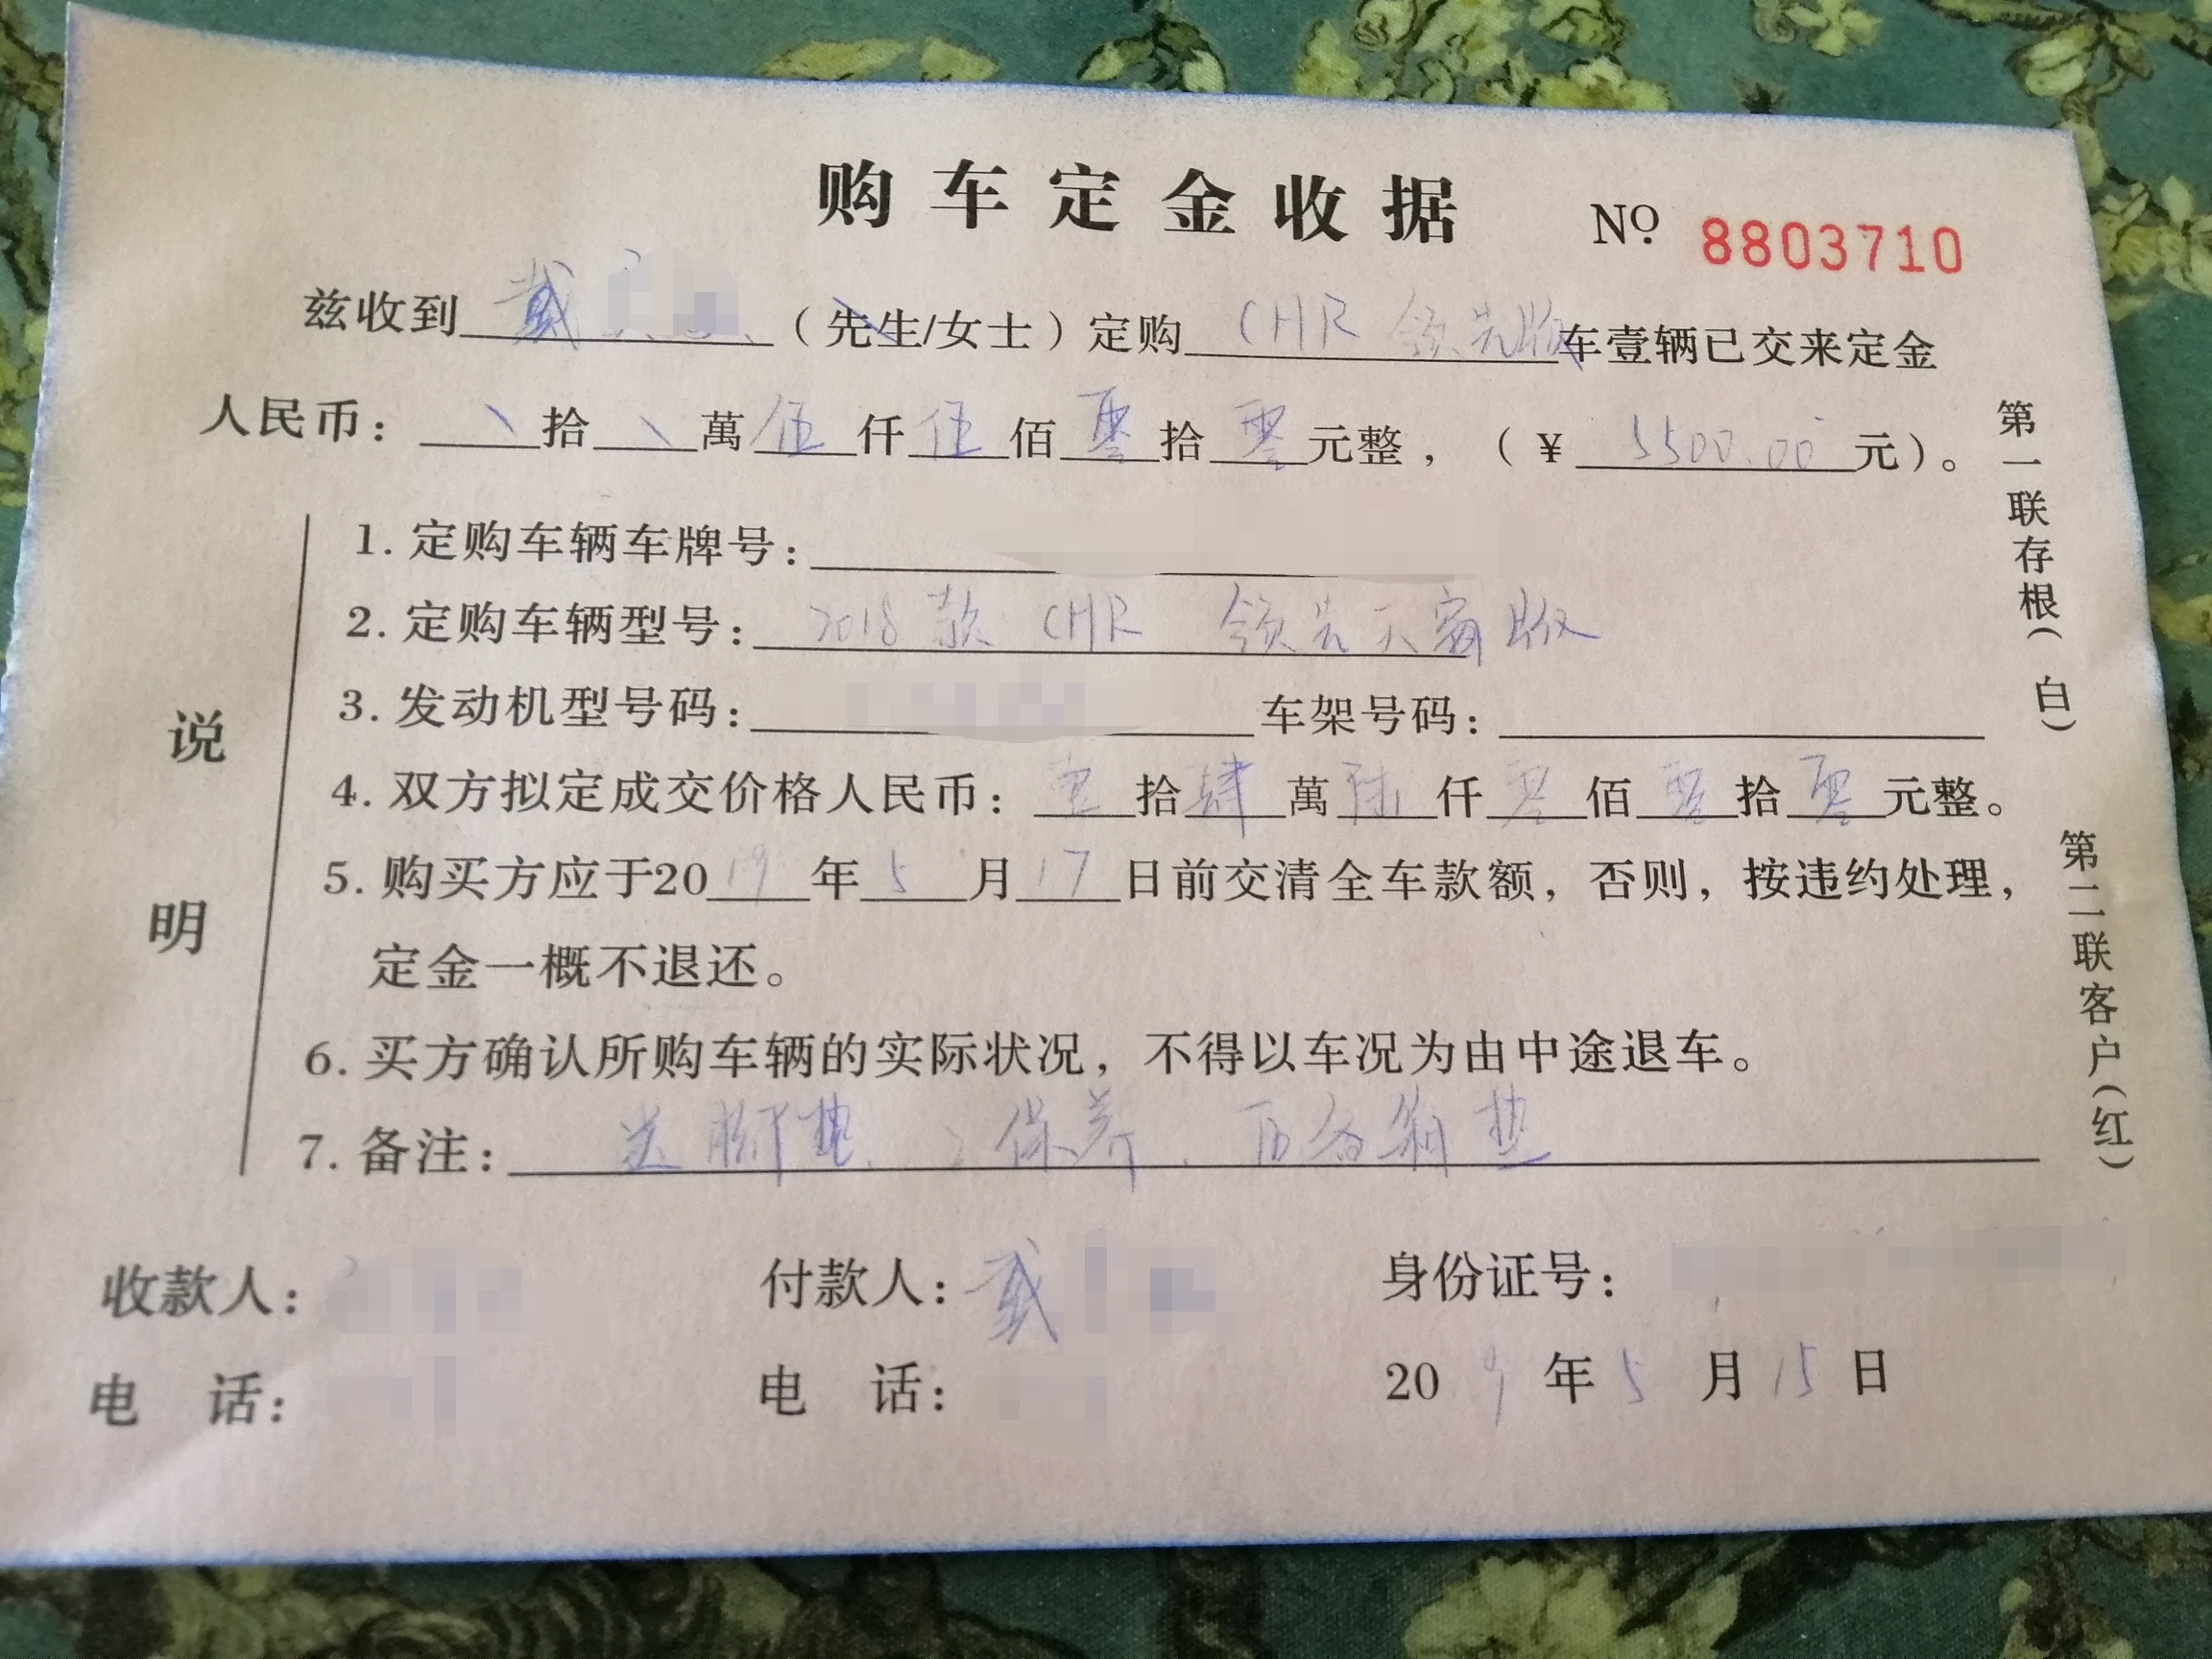 购车定金收据 No. 8803710
兹收到 戴 （先生/女士）定购 CHR 领先版 车壹辆已交来定金
人民币：＼拾＼萬伍仟伍佰零拾零元整，（¥ 5500.00 元）。
说明
1. 定购车辆车牌号：
2. 定购车辆型号：2018款 CHR 领先天窗版
3. 发动机型号码： 车架号码：
4. 双方拟定成交价格人民币：壹拾肆萬陆仟零佰零拾零元整。
5. 购买方应于2019年5月17日前交清全车款额，否则，按违约处理，
定金一概不退还。
6. 买方确认所购车辆的实际状况，不得以车况为由中途退车。
7. 备注：送脚垫、保养、后备箱垫
收款人： 付款人：戴 身份证号：
电 话： 电 话： 20 9年5月15日
第一联存根（白）
第二联客户（红）